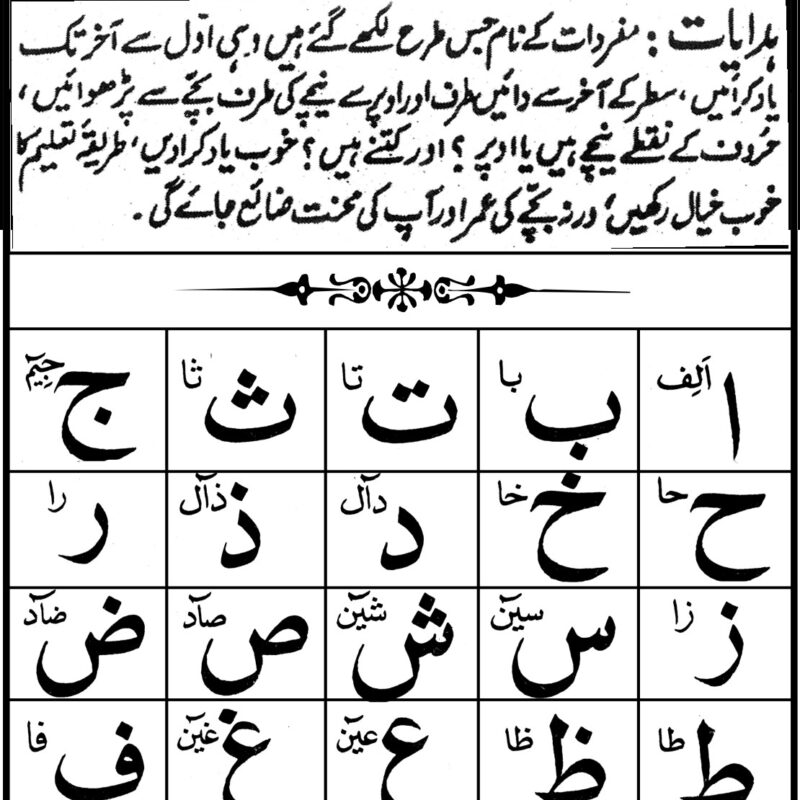 ہدایات : مفردات کے نام جس طرح لکھے گئے ہیں وہی اوّل سے آخر تک
یاد کرائیں، سطر کے آخر سے دائیں طرف اور اوپر سے نیچے کی طرف بچّے سے پڑھوائیں،
حروف کے نقطے نیچے ہیں یا اوپر ؟ اور کتنے ہیں ؟ خوب یاد کرادیں، طریقۂ تعلیم کا
خوب خیال رکھیں، ورنہ بچّے کی عمر اور آپ کی محنت ضائع جائے گی۔
ا اَلِف ب با ت تا ث ثا ج جِیٓم
ح حا خ خا د دآل ذ ذآل ر را
ز زا س سیٓن ش شیٓن ص صآد ض ضآد
ط طا ظ ظا ع عیٓن غ غیٓن ف فا